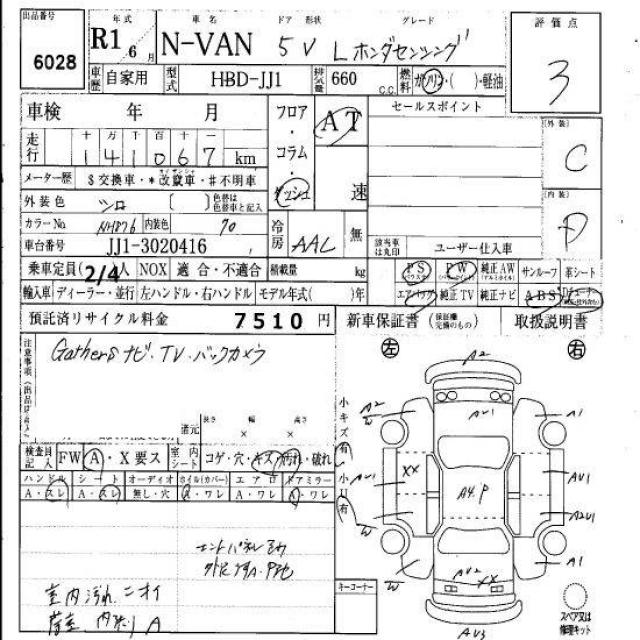 出品番号 年式 車名 ドア 形状 グレード 評価点
6028 R1 6月 N-VAN 5V L ホンダセンシング 3
車歴 自家用 型式 HBD-JJ1 排気量 660 C.C. 燃料 ガソリン・( )・軽油
車検 年 月 フロア・コラム・ダッシュ AT 速 セールスポイント
走行 十 万 千 百 十 一
1 4 1 0 6 7 km
(外装) C
メーター歴 $交換車・*改竄車・#不明車
(内装) D
外装色 シロ ( ) 色替は色替車と記入
カラーNo. NH876 内装色 70 冷房 AAC 無
車台番号 JJ1-3020416 該当車は丸印 ユーザー仕入車
乗車定員 ( 2/4 )人 NOX 適合・不適合 積載量 kg PS PW 純正AW サンルーフ 革シート
輸入車 ディーラー・並行 左ハンドル・右ハンドル モデル年式( )年 エアバック 純正TV 純正ナビ ABS
預託済リサイクル料金 7510 円 新車保証書 (保証欄完備のもの) 取扱説明書
注意事項 Gathers ナビ・TV・バックカメラ
左 右
還元 長さ × 幅 × 高さ
小キズ有 小U有
検査員記入 FW A・X要ス 室内シート コゲ・穴・キズ・汚れ・破れ
ハンドル シート オーディオ ホイル(カバー) エアロ ドアミラー
A・スレ A・スレ 無し・穴 A・ワレ A・ワレ A・ワレ
室内汚れ ニオイ
A2
A2 W AU1 A1
AU1 XX A4.P AU1
A2U1
W W
W AU2 XX A1
AU3
キーコーナー
スペア又は修理キット